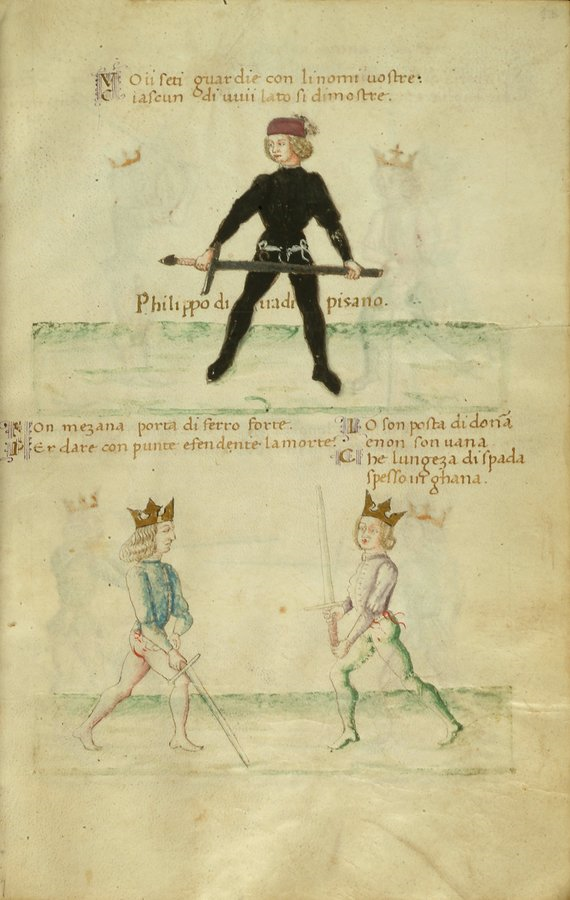 Voii seti guardie con li nomi vostre:
Ciascun di vuii lato si dimostre.
Philippo di vadi pisano.
Son mezana porta di ferro forte.
Per dare con punte e fendente la morte.
Io son posta di dona
e non son vana
Che lungeza di spada
spesso in ghana.